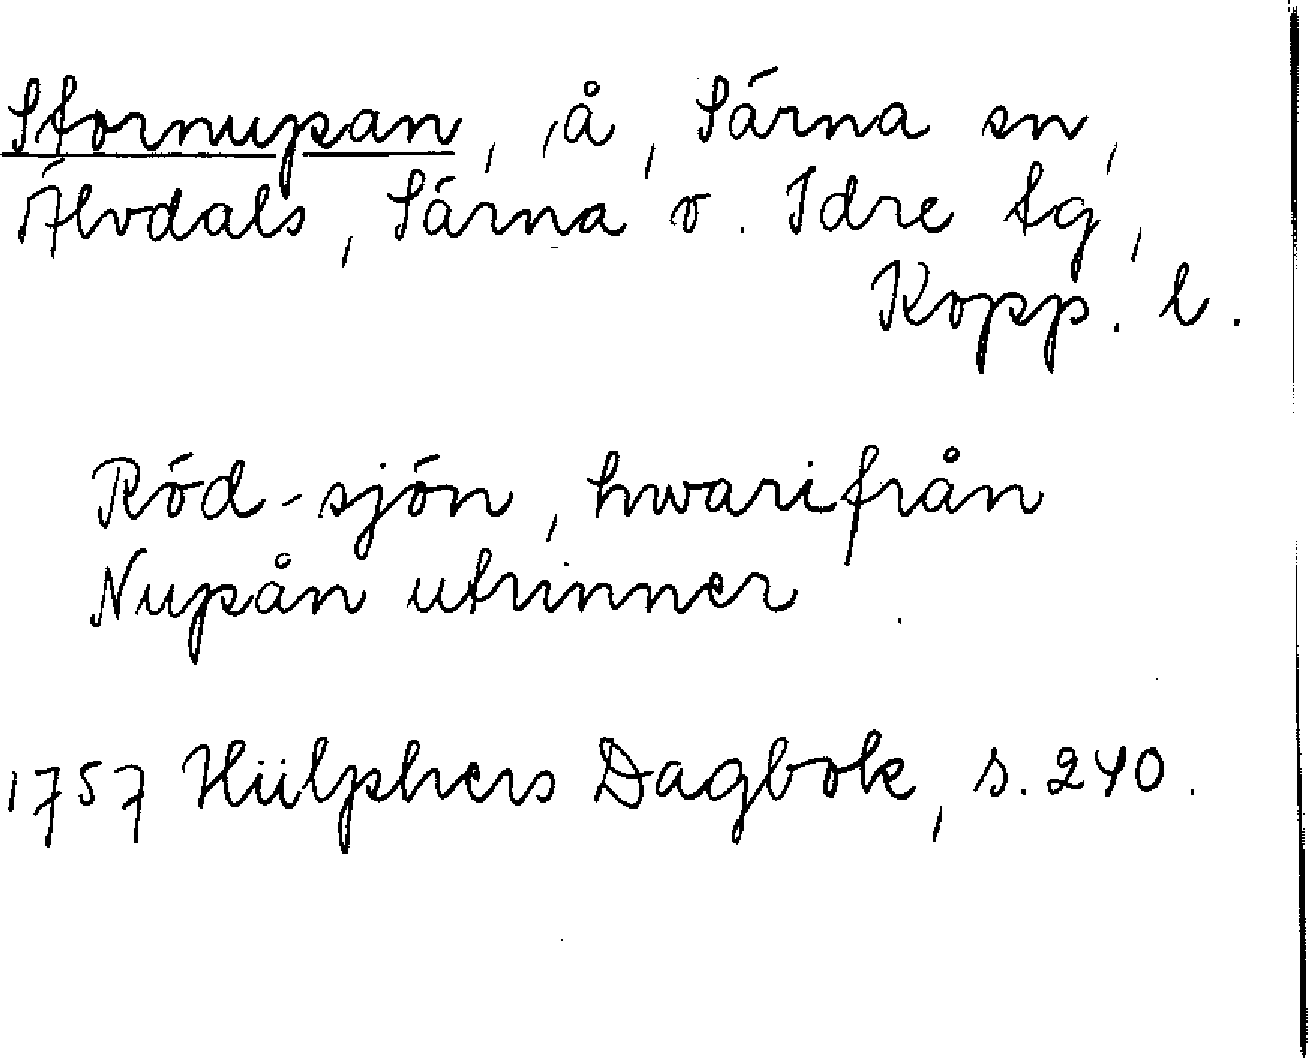 Stornupan, å, Särna sn,
Älvdals, Särna o. Idre tg,
Kopp. l.
Röd-sjön, hwarifrån
Nupån utrinner
1757 Hülphers Dagbok, s. 240.